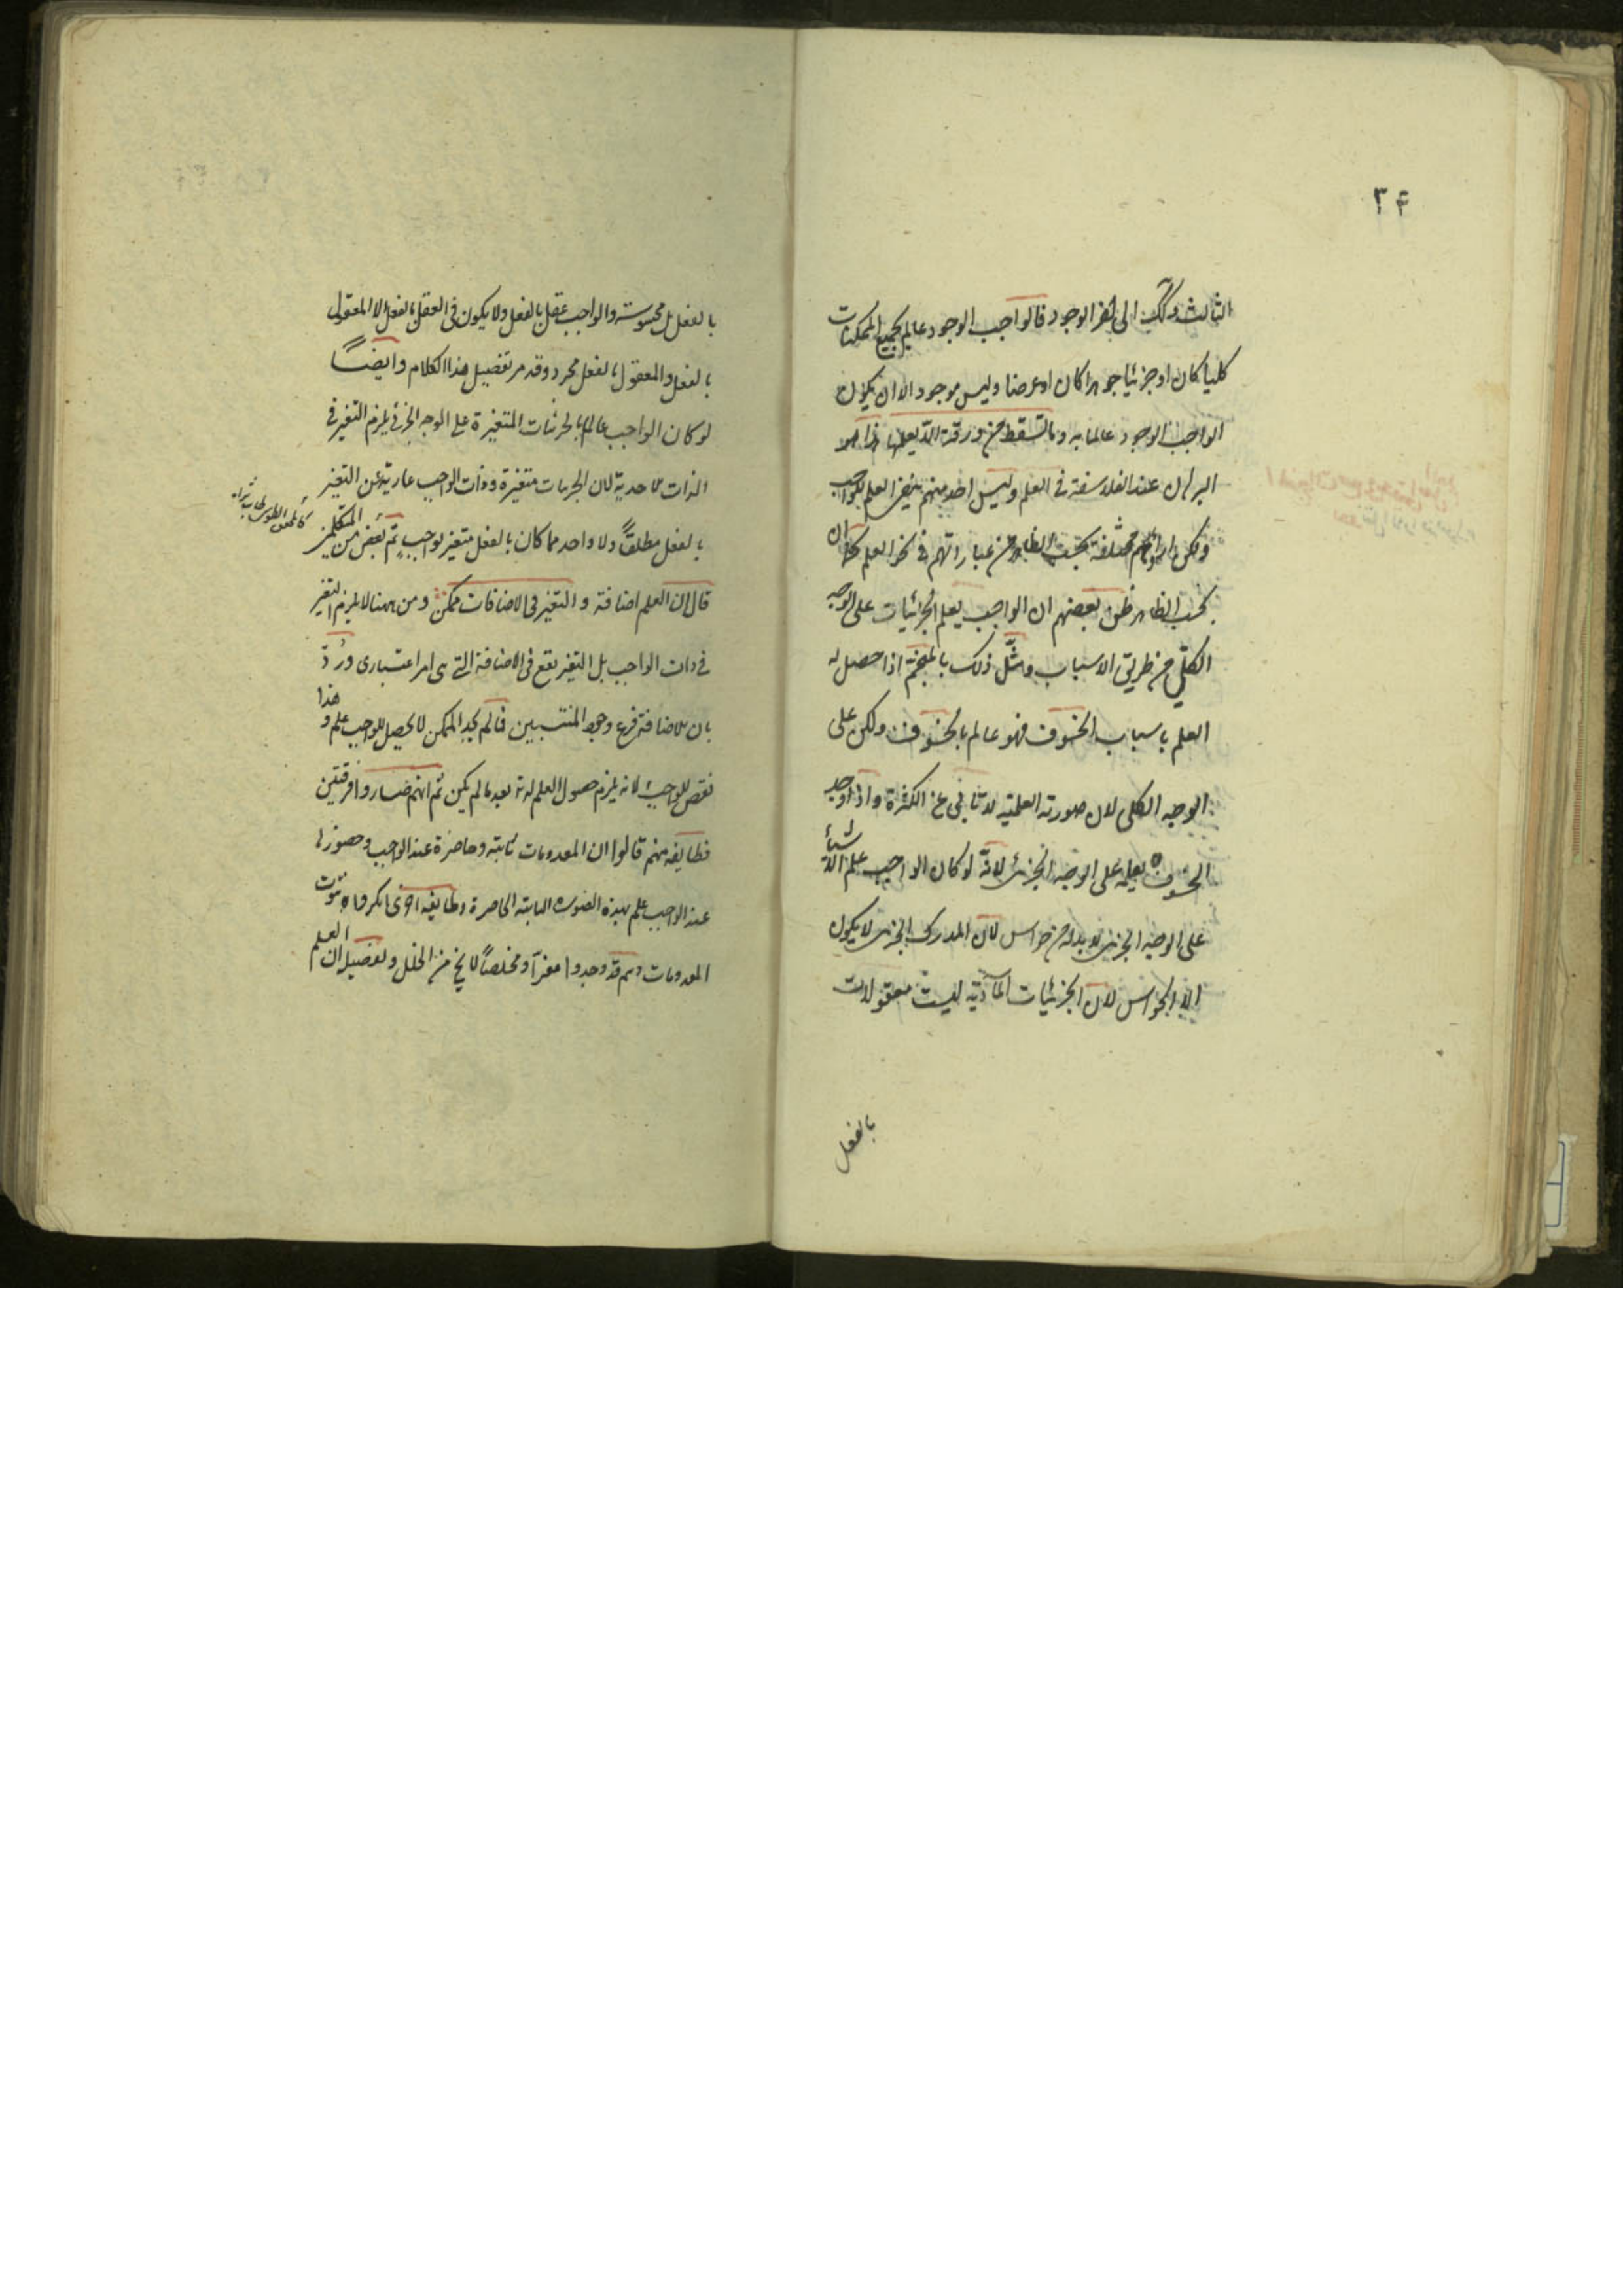 ٣۴
الثالث وكذلك الى آخر الوجود فالواجب الوجود عالم بجميع الممكنات
كليا كان او جزئيا جوهرا كان او عرضا وليس موجود الا ان يكون
الواجب الوجود عالما به وما تسقط من ورقة الا يعلمها هذا هو
البرهان عند الفلاسفة فى العلم وليس احد منهم ينفى العلم للواجب
ولكن مختلفة بحسب الظاهر من عباراتهم فى نحو العلم
بحسب الظاهر ظن بعضهم ان الواجب يعلم الجزئيات على الوجه
الكلّى من طريق الاسباب ومثّل ذلك بالمنجّم اذا حصل له
العلم باسباب الخسوف فهو عالم بالخسوف ولكن على
الوجه الكلى لان صورته العلمية لا تابى عن الكثرة واذا وجد
الخسوف يعلمه على الوجه الجزئى لانّه لو كان الواجب علم الاشياء
على الوجه الجزئى لا بد له من حواس لان المدرك الجزئى لا يكون
الا بالحواس لان الجزئيات المادّية ليست معقولات
بالفعل
بالفعل بل محسوسة والواجب عقل بالفعل ولا يكون فى العقل بالفعل الا المعقول
بالفعل والمعقول بالفعل مجرد وقد مر تفصيل هذا الكلام وايضاً
لو كان الواجب عالما بالجزئيات المتغيرة على الوجه الجزئى يلزم التغير فى
الذات الاحدية لان الجزئيات متغيرة وذات الواجب عارية عن التغير
بالفعل مطلقاً ولا واحد مما كان بالفعل متغير لواجب ثم بعض من المتكلمين
كالمحقق الطوسى
قال ان العلم اضافة و التغير فى الاضافات ممكن ومن ههنا لا يلزم التغير
فى ذات الواجب بل التغير يقع فى الاضافة التى هى امر اعتبارى ورُدّ
بان الاضافة فرع وجود المنتسبين فما لم يوجد الممكن لا يحصل للواجب علم و هذا
نقص للواجب لانه يلزم حصول العلم له بعد ما لم يكن ثم انهم صاروا فرقتين
فطايفة منهم قالوا ان المعدومات ثابتة وحاضرة عند الواجب وحضورها
عند الواجب علم بهذه الصورة الثابتة الحاضرة وطايفة اخرى انكروا ثبوت
المعدومات وهم قد وجدوا مفرّاً ومخلصاً لا يخ من الخلل وتفصيله ان العلم